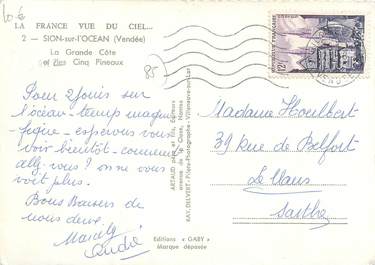 10 €
LA FRANCE VUE DU CIEL...
2 - SION-sur-l'OCEAN (Vendée)
La Grande Côte
et les Cinq Pineaux
85
Pour 2 jours sur
l'océan - temps magni-
fique - espérons vous
voir bientôt - comment
allez-vous ? on ne vous
voit plus.
Bons Baisers de
nous deux.
Marcelle
André
ARTAUD Père et Fils, Éditeurs
avenue de la Close, Nantes
RAY-DELVERT - Pilote-Photographe - Villeneuve-sur-Lot
Editions « GABY »
Marque déposée
REPUBLIQUE FRANÇAISE
12F
Madame Houlbert
39 Rue de Belfort
Le Mans
Sarthe